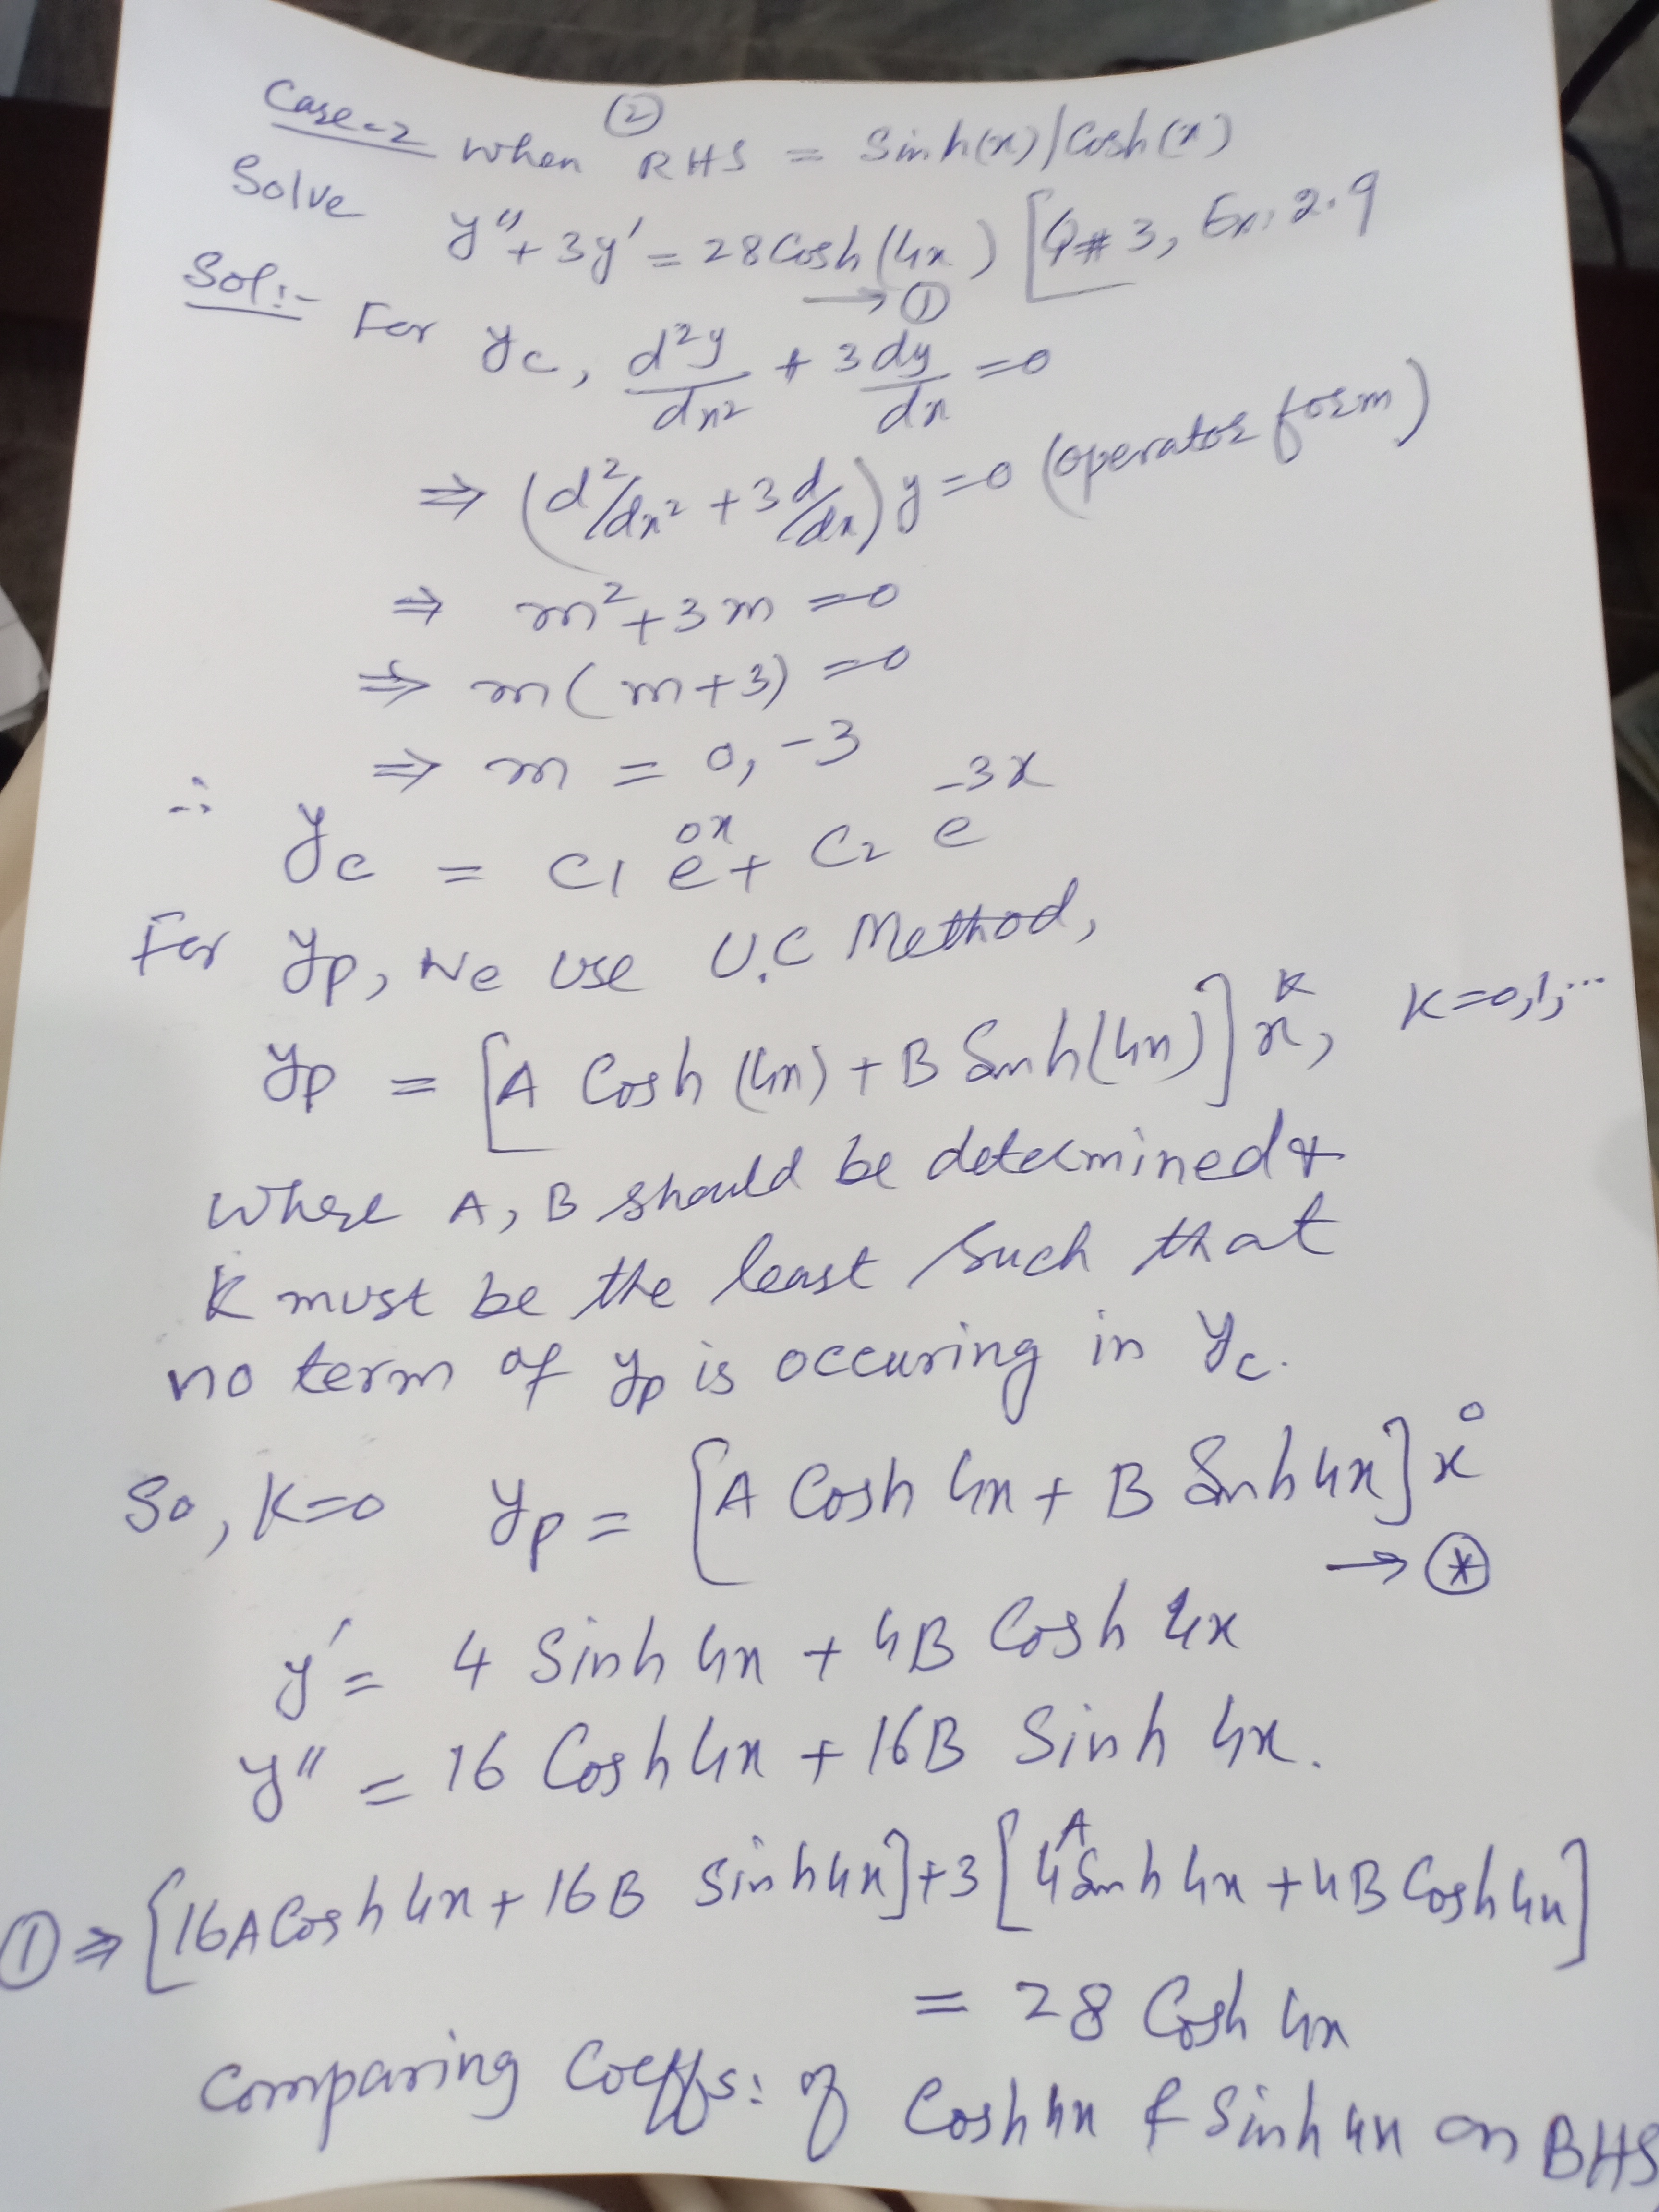 ②
Case-2 when RHS = Sinh(x)/Cosh(x)
Solve y" + 3y' = 28 Cosh(4x) [Q#3, Ex: 2.9
→ ①
Sol:- For yc, d²y/dx² + 3 dy/dx = 0
⇒ (d²/dx² + 3 d/dx) y = 0 (operator form)
⇒ m² + 3m = 0
⇒ m(m+3) = 0
⇒ m = 0, -3
∴ yc = C1 e^0x + C2 e^-3x
For yp, we use U.C Method,
yp = [A Cosh(4x) + B Sinh(4x)] x^K, K=0,1,...
where A, B should be determined &
K must be the least such that
no term of yp is occuring in yc.
So, K=0 yp = [A Cosh 4x + B Sinh 4x] x^0
→ ⊛
y' = 4 Sinh 4x + 4B Cosh 4x
y" = 16 Cosh 4x + 16B Sinh 4x.
① ⇒ [16A Cosh 4x + 16B Sinh 4x] + 3 [4A Sinh 4x + 4B Cosh 4x]
= 28 Cosh 4x
Comparing Coeffs: of Cosh 4x & Sinh 4x on BHS